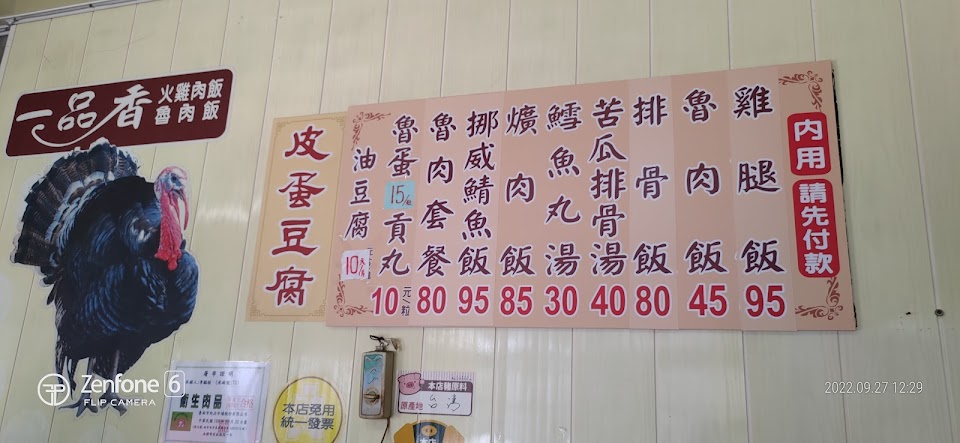 一品香
火雞肉飯
魯肉飯
內用 請先付款
雞腿飯 95
魯肉飯 45
排骨飯 80
苦瓜排骨湯 40
鱈魚丸湯 30
爌肉飯 85
挪威鯖魚飯 95
魯肉套餐 80
魯蛋 15/粒
貢丸 10元/粒
油豆腐 10
皮蛋豆腐
衛生肉品
本店免用
統一發票
本店豬原料
原產地 台灣
本店
Zenfone 6
FLIP CAMERA
2022.09.27 12:29